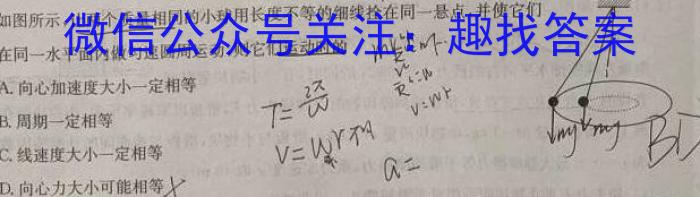 如图所示,两个质量相同的小球用长度不等的细线拴在同一悬点,并使它们
在同一水平面内做匀速圆周运动,则它们运动时的
微信公众号关注:趣找答案
A. 向心加速度大小一定相等
B. 周期一定相等
C. 线速度大小一定相等
D. 向心力大小可能相等
T=2π/ω
v=ωr
v=ωr
a=
mg
mg
BD